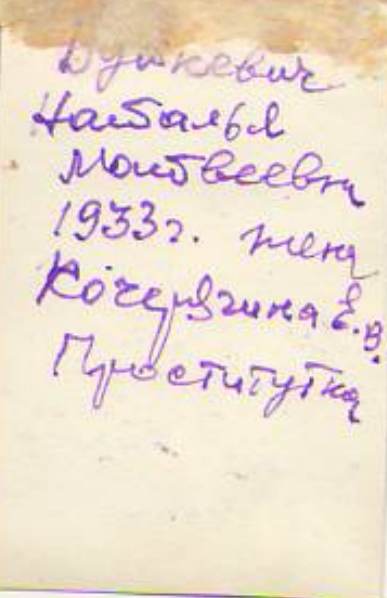 Наталья
Матвеевна
1933г. жена
Кочерягина Е.В.
Проститутка